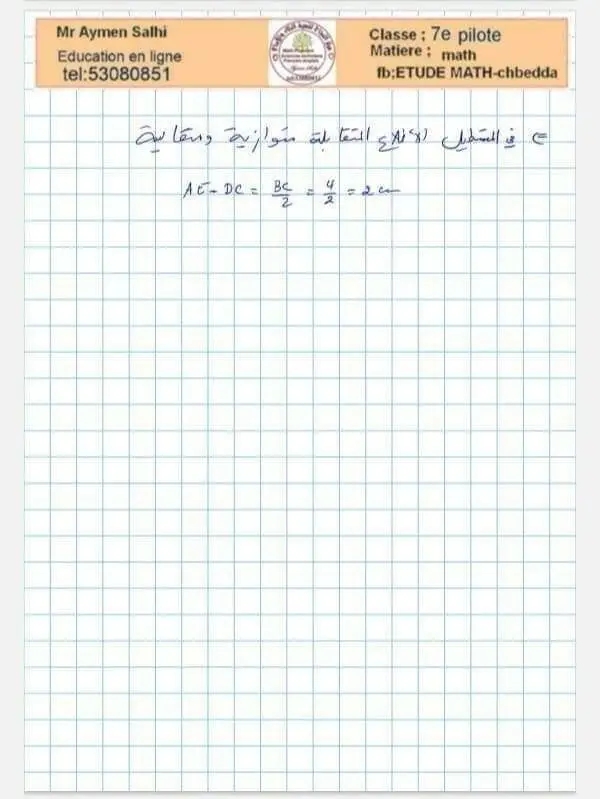 Mr Aymen Salhi
Education en ligne
tel:53080851
Classe ; 7e pilote
Matiere ; math
fb;ETUDE MATH-chbedda
في المستطيل الأضلاع المتقابلة متوازية ومتقايسة
AE = DC = BC/2 = 4/2 = 2 cm